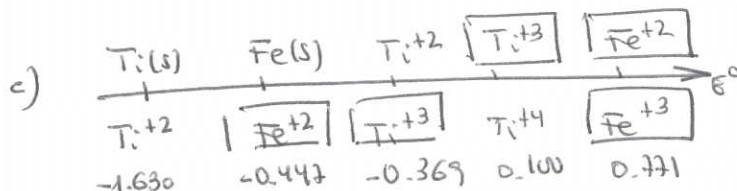 Ti(s) Fe(s) Ti+2 Ti+3 Fe+2
c) E°
Ti+2 Fe+2 Ti+3 Ti+4 Fe+3
-1.630 -0.447 -0.369 0.100 0.771